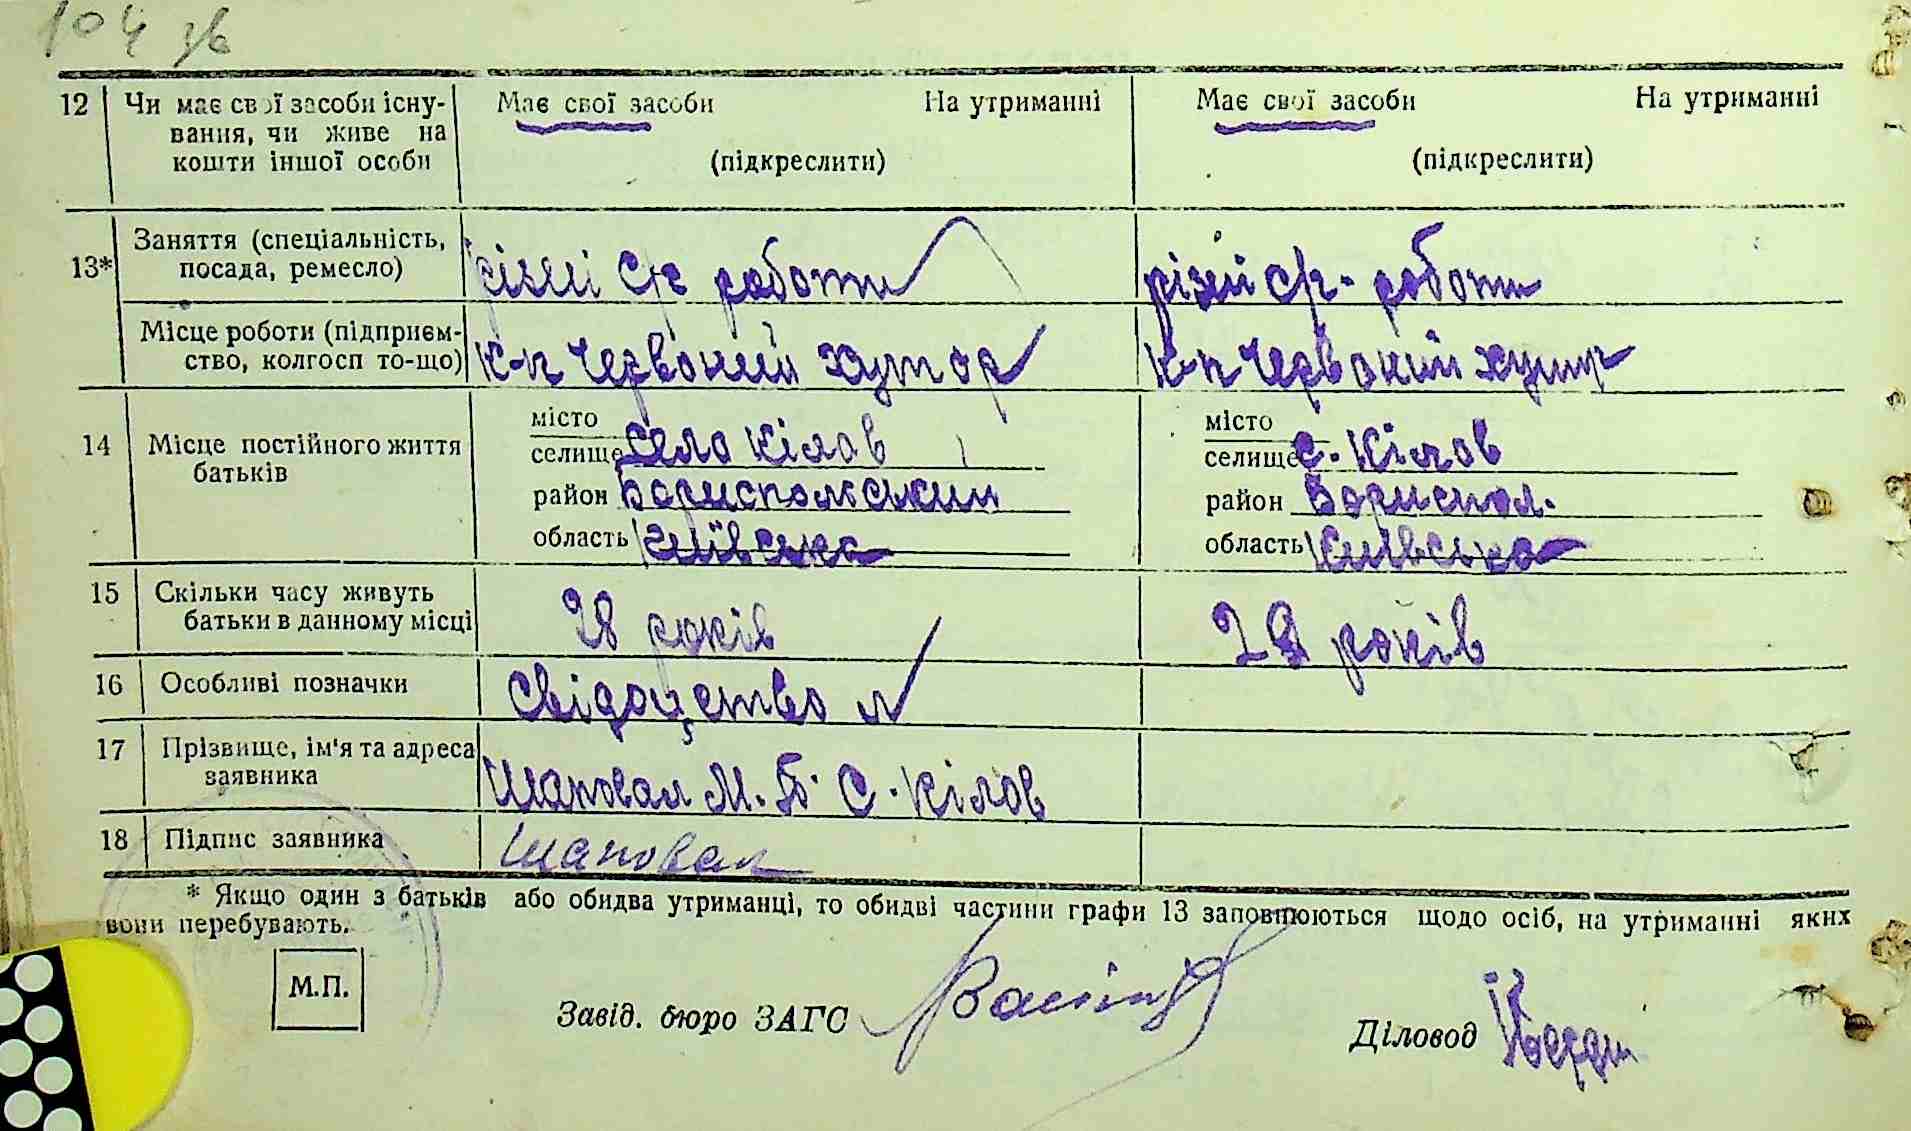 104 зв
12 Чи має свої засоби існу- Має свої засоби На утриманні Має свої засоби На утриманні
вання, чи живе на
кошти іншої особи (підкреслити) (підкреслити)
13* Заняття (спеціальність, різні с/г роботи різні с/г. роботи
посада, ремесло)
Місце роботи (підприєм- К-п Червоний хутор К-п Червоний хутір
ство, колгосп то-що)
14 Місце постійного життя місто місто
батьків селище село Кілов селище с. Кілов
район Бориспольський район Бориспол.
область Київська область Київська
15 Скільки часу живуть 28 років 28 років
батьки в данному місці
16 Особливі позначки Свідоцтво
17 Прізвище, ім'я та адреса Шаповал М. Б. С. Кілов
заявника
18 Підпис заявника Шаповал
* Якщо один з батьків або обидва утриманці, то обидві частини графи 13 заповнюються щодо осіб, на утриманні яких
вони перебувають.
М.П.
Завід. бюро ЗАГС
Діловод